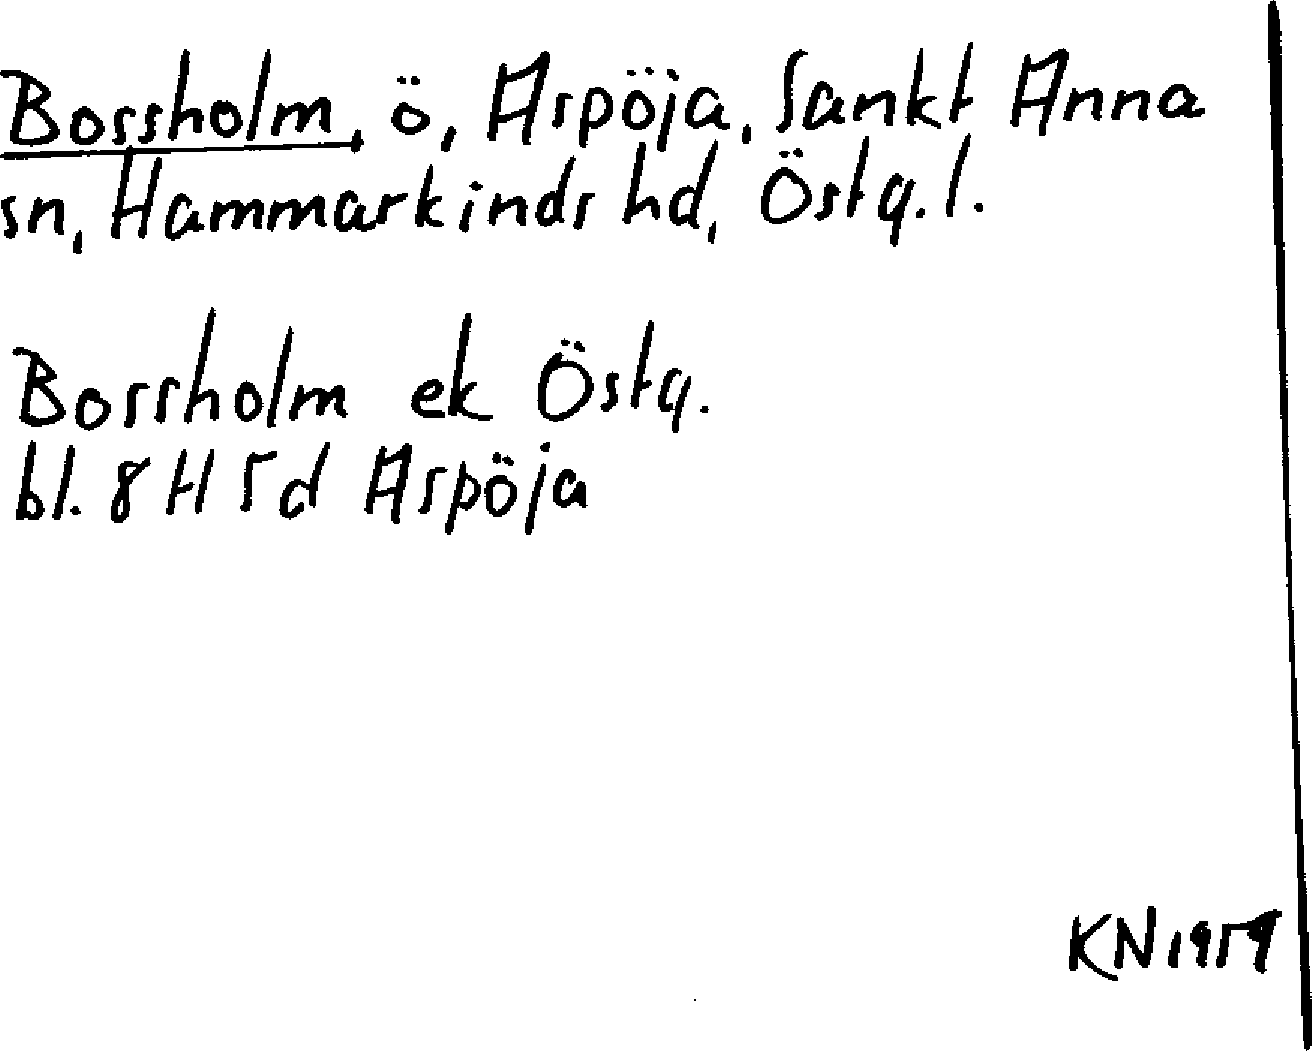 Bossholm, ö, Aspöja, Sankt Anna
sn, Hammarkinds hd, Östg. l.
Bossholm ek Östg.
bl. 8 H 5d Aspöja
KN 1959